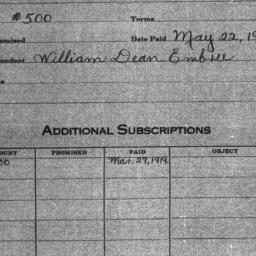 #500 Terms
omised Date Paid May 22, 19
ondent William Dean Embree
s
ADDITIONAL SUBSCRIPTIONS
OUNT PROMISED PAID OBJECT
00 Mar. 27, 1919.